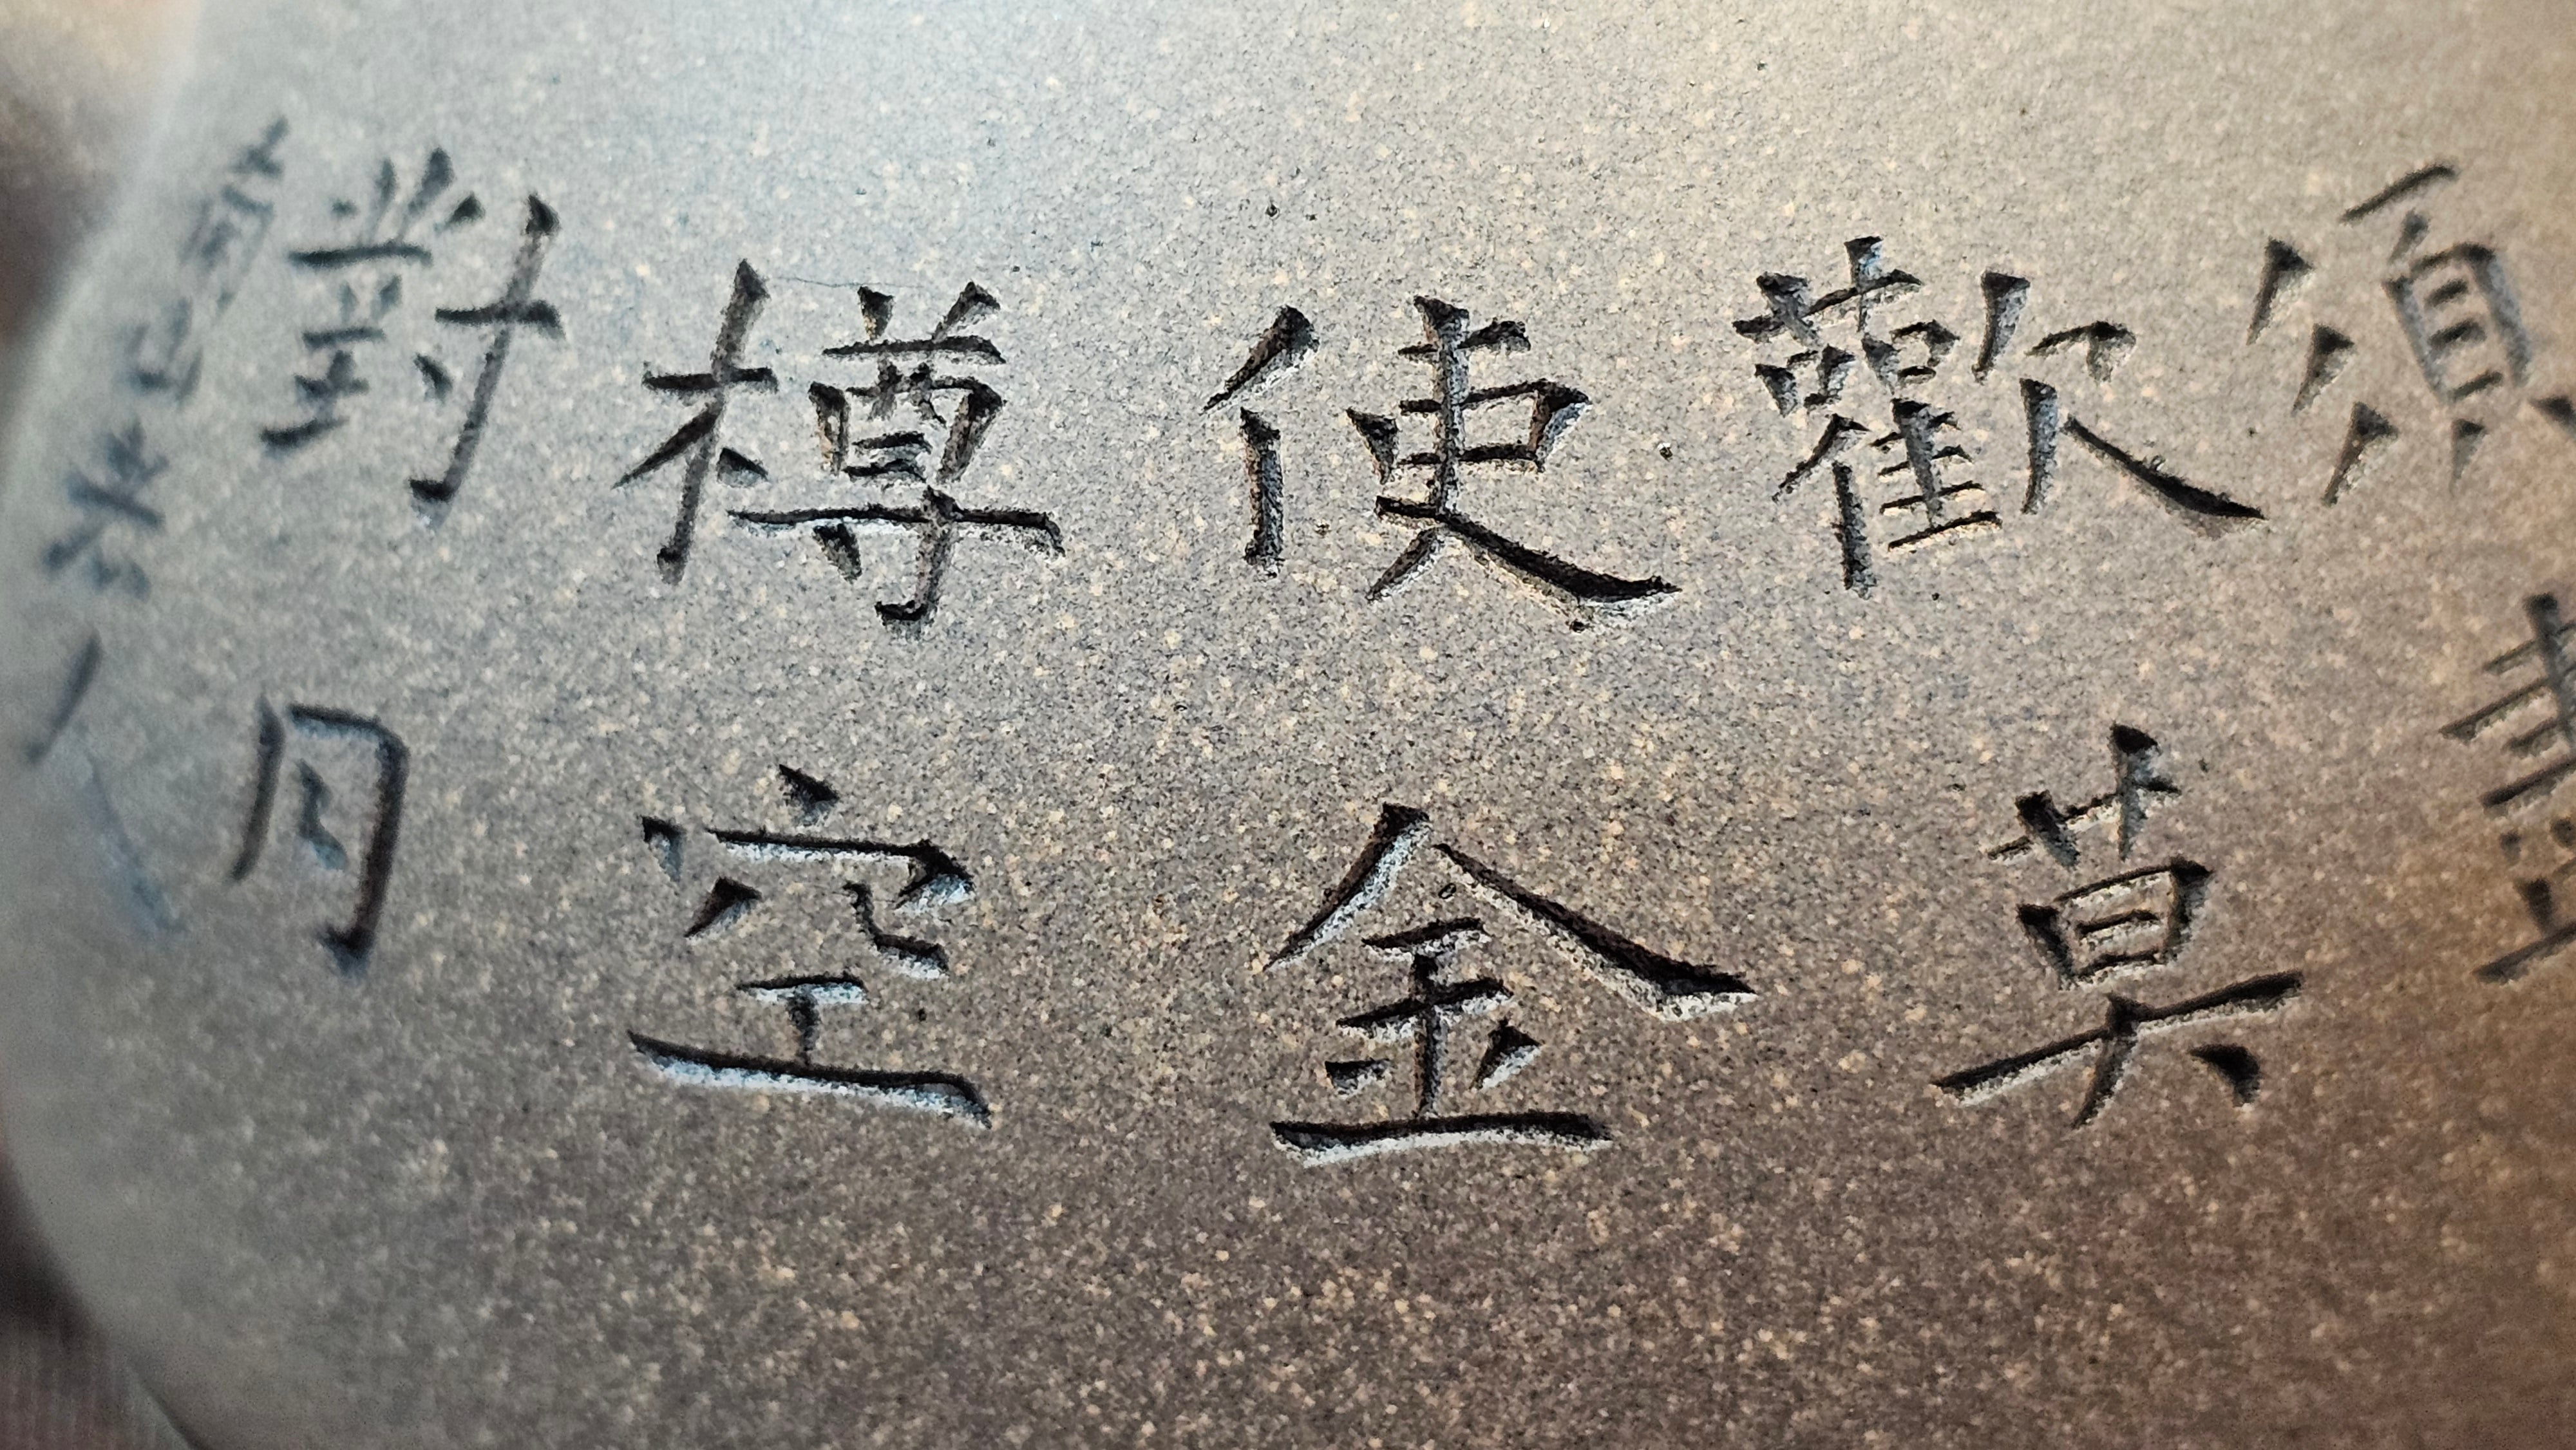 須盡
歡莫
使金
樽空
對月